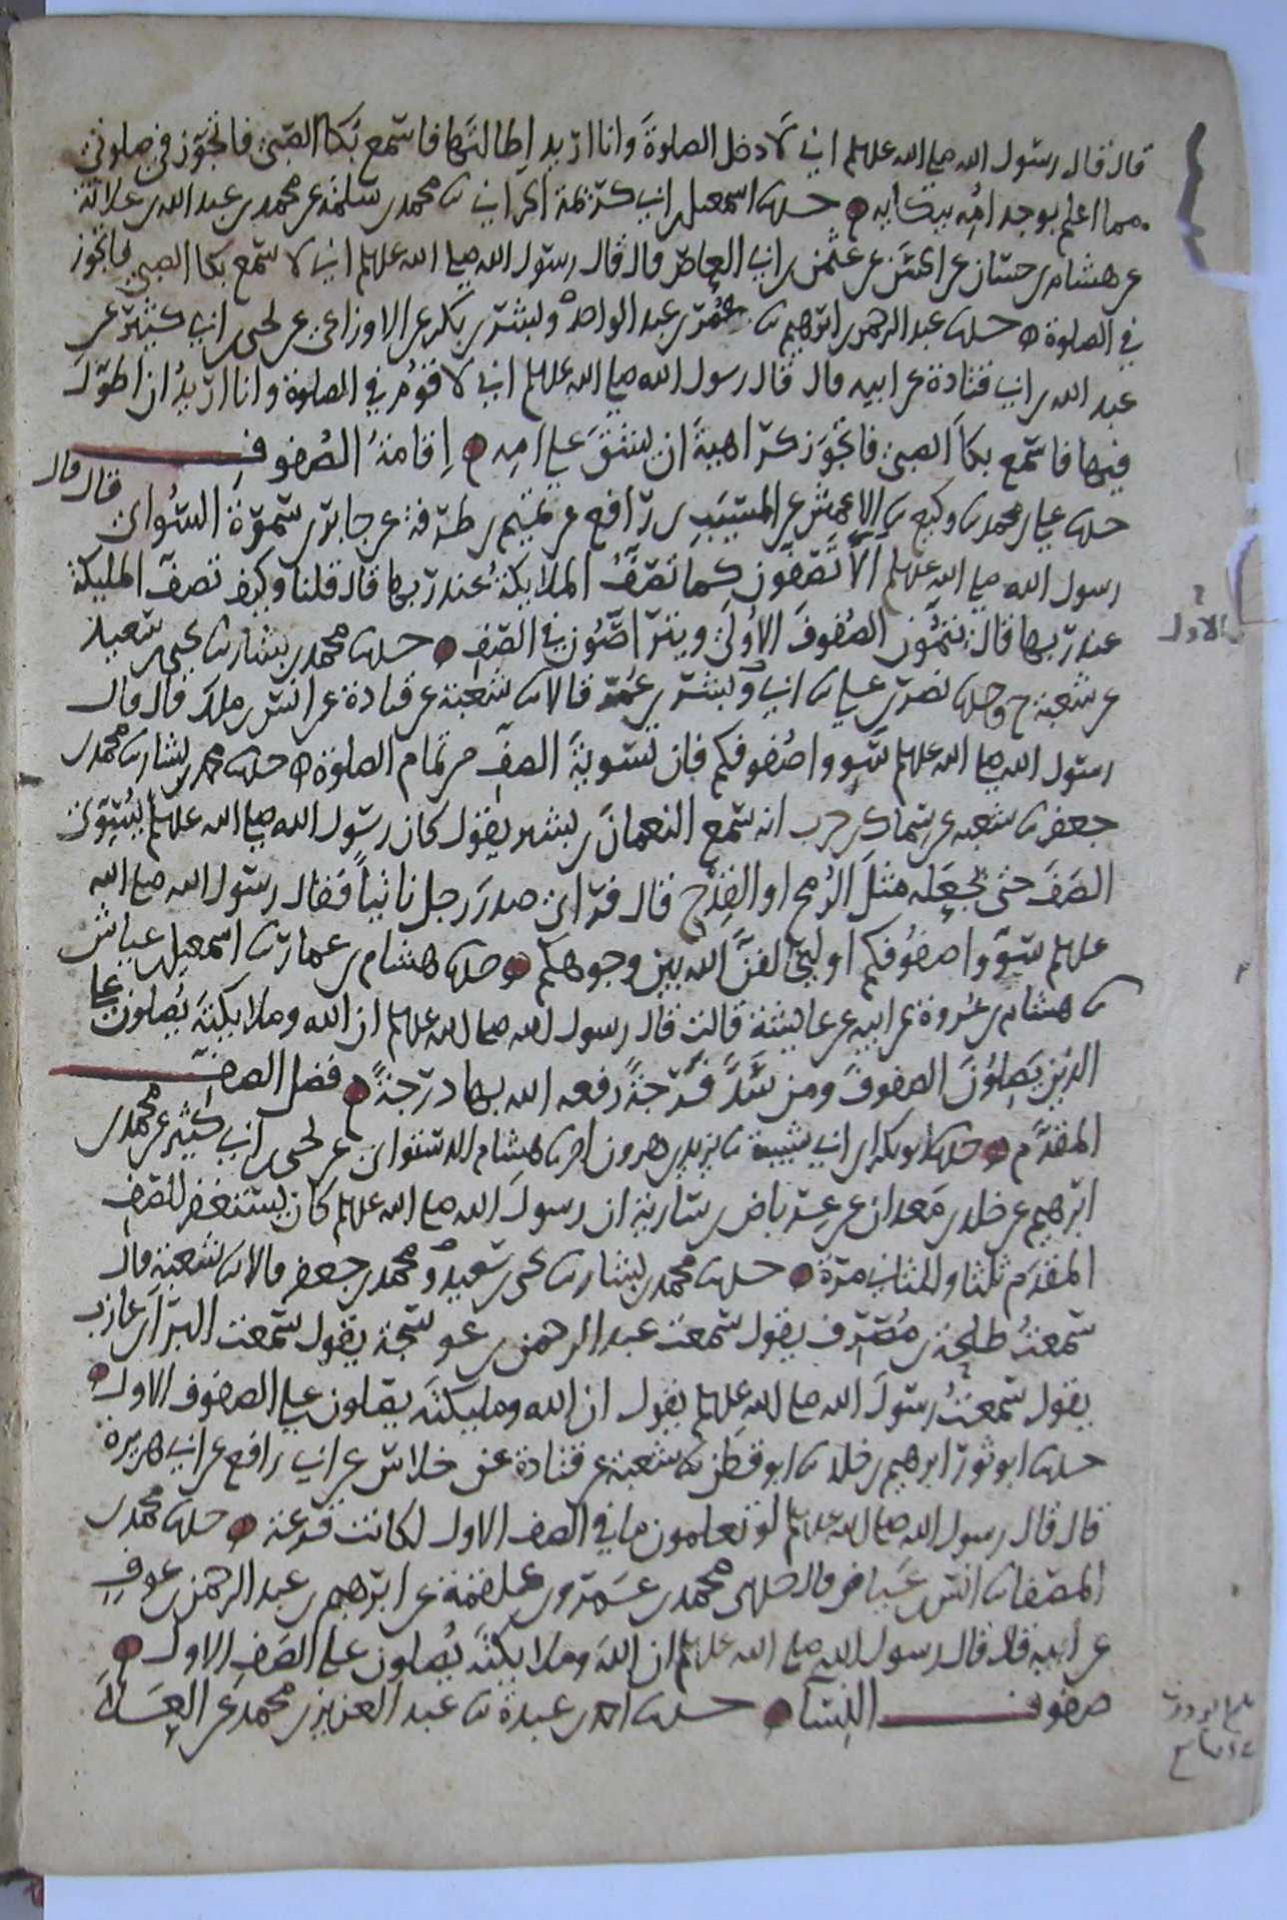 قال قال رسول الله صلى الله عليه وسلم اني لادخل الصلوة وانا اريد اطالتها فاسمع بكا الصبي فاتجوز في صلوتي
مما اعلم بوجد امه ببكايه حدثنا اسمعيل بن ابي كريمة الحراني ثنا محمد بن سلمة عن محمد بن عبد الله بن علاثة
عن هشام بن حسان عن الحسن عن عثمن بن ابي العاص قال قال رسول الله صلى الله عليه وسلم اني لاسمع بكا الصبي فاتجوز
في الصلوة حدثنا عبد الرحمن بن ابرهيم ثنا عمر بن عبد الواحد وبشر بن بكر عن الاوزاعي عن يحيى بن ابي كثير عن
عبد الله بن ابي قتادة عن ابيه قال قال رسول الله صلى الله عليه وسلم اني لاقوم في الصلوة وانا اريد ان اطول
فيها فاسمع بكا الصبي فاتجوز كراهية ان يشق على امه اقامة الصفوف
حدثنا علي بن محمد ثنا وكيع ثنا الاعمش عن المسيب بن رافع عن تميم بن طرفة عن جابر بن سمرة السوائي قال قال
رسول الله صلى الله عليه وسلم الا تصفون كما تصف الملايكة عند ربها قال قلنا وكيف تصف المليكة
عند ربها قال يتمون الصفوف الاولى ويتراصون في الصف حدثنا محمد بن بشار ثنا يحيى بن سعيد
الاول
عن شعبة ح وحدثنا نصر بن علي ثنا ابي وبشر بن عمر قالا ثنا شعبة عن قتادة عن انس بن ملك قال قال
رسول الله صلى الله عليه وسلم سووا صفوفكم فان تسوية الصف من تمام الصلوة حدثنا محمد بن بشار ثنا محمد بن
جعفر ثنا شعبة عن سماك بن حرب انه سمع النعمان بن بشير يقول كان رسول الله صلى الله عليه وسلم يسوي
الصف حتى يجعله مثل الرمح او القدح قال فراى صدر رجل ناتيا فقال رسول الله صلى الله
عليه وسلم سووا صفوفكم او ليخالفن الله بين وجوهكم حدثنا هشام بن عمار ثنا اسمعيل بن عياش
ثنا هشام بن عروة عن ابيه عن عايشة قالت قال رسول الله صلى الله عليه وسلم ان الله وملايكته يصلون على
الذين يصلون الصفوف ومن سد فرجة رفعه الله بها درجة فضل الصف
المقدم حدثنا ابو بكر بن ابي شيبة ثنا يزيد بن هرون انا هشام الدستوائي عن يحيى بن ابي كثير عن محمد بن
ابرهيم عن خلد بن معدان عن عرباض بن سارية ان رسول الله صلى الله عليه وسلم كان يستغفر للصف
المقدم ثلثا وللثاني مرة حدثنا محمد بن بشار ثنا يحيى بن سعيد ومحمد بن جعفر قالا ثنا شعبة قال
سمعت طلحة بن مصرف يقول سمعت عبد الرحمن بن عوسجة يقول سمعت البراء بن عازب
يقول سمعت رسول الله صلى الله عليه وسلم يقول ان الله ومليكته يصلون على الصفوف الاول
حدثنا ابو ثور ابرهيم بن خلد ثنا ابو قطن ثنا شعبة عن قتادة عن خلاس عن ابي رافع عن ابي هريرة
قال قال رسول الله صلى الله عليه وسلم لو تعلمون ما في الصف الاول لكانت قرعة حدثنا محمد بن
المصفا ثنا انس بن عياض قال حدثني محمد بن عمرو بن علقمة عن ابرهيم بن عبد الرحمن بن عوف
عن ابيه قال قال رسول الله صلى الله عليه وسلم ان الله وملايكته يصلون على الصف الاول
صفوف النسا حدثنا احمد بن عبدة ثنا عبد العزيز بن محمد عن العلا